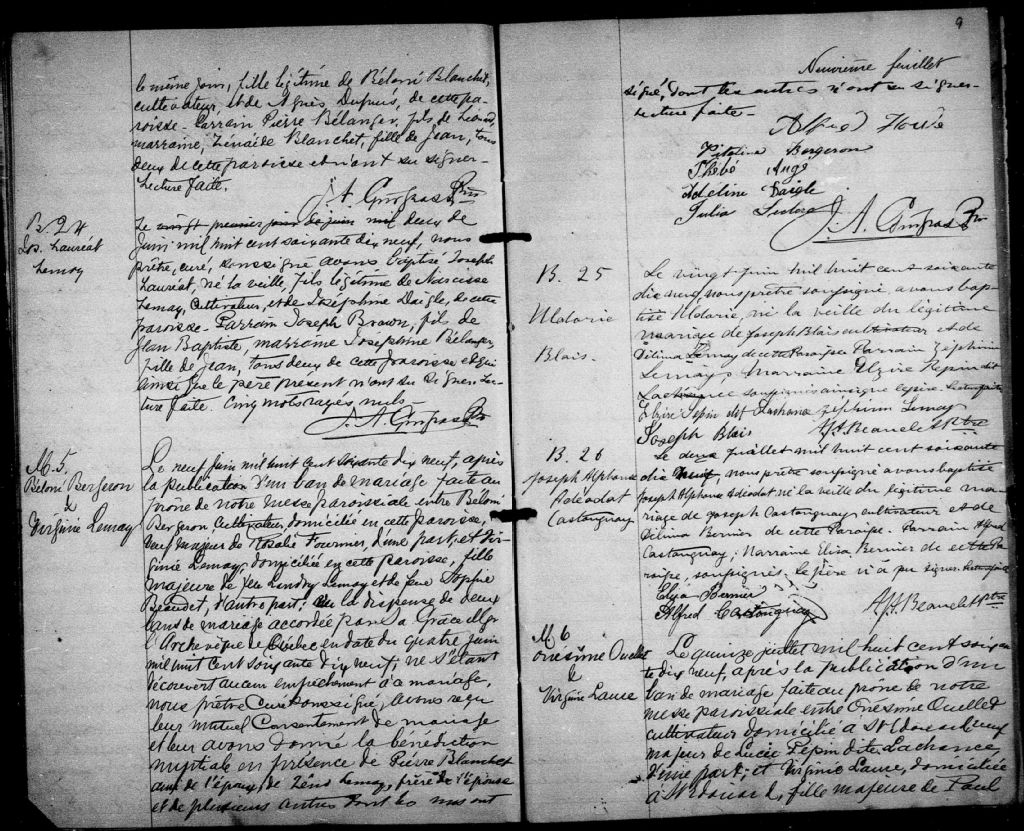 le même jour, fille légitime de Béloni Blanchet,
cultivateur, et de Agnès Dupuis, de cette pa-
roisse - Parrain Pierre Bélanger, fils de Léand,
marraine, Zénaïde Blanchet, fille de Jean, tous
deux de cette paroisse et n'ont su signer -
Lecture faite.
J. A. Gingras Ptre
B. 24
Jos. Lauréat
Lemay
Le vingt premier jour de juin mil deux de
Juin mil huit cent soixante dix neuf, nous
prêtre, curé, soussigné avons baptisé Joseph
Lauréat, né la veille, fils légitime de Narcisse
Lemay, Cultivateur, et de Joséphine Daigle, de cette
paroisse - Parrain Joseph Brown, fils de
Jean Baptiste, marraine Josephine Bélanger,
fille de Jean, tous deux de cette paroisse et qui
ainsi que le père present n'ont su signer. Lec-
ture faite. Cinq mots rayés nuls -
J. A. Gingras Ptr
M. 5.
Béloni Bergeron
&
Virginie Lemay
Le neuf Juin mil huit cent soixante dix neuf, après
la publication d'un ban de mariage faite au
prône de notre messe paroissiale entre Béloni
Bergeron Cultivateur, domicilié en cette paroisse,
veuf majeur de Rosalie Fournier, d'une part; et Vir-
ginie Lemay, domiciliée en cette paroisse, fille
majeure de feu Landry Lemay et de feue Sophie
Beaudet, d'autre part; vu la dispense de deux
bans de mariage accordée par sa Grâce Mgr
l'Archevêque de Québec en date du quatre juin
mil huit cent soixante dix neuf; ne s'étant
découvert aucun empêchement à ce mariage,
nous prêtre Curé soussigné, avons reçu
leur mutuel Consentement de mariage
et leur avons donné la bénédiction
nuptiale en présence de Pierre Blanchet
ami de l'époux, de Zéno Lemay, frère de l'épouse
et de plusieurs autres dont les uns ont
9
Neuvième feuillet
signé, dont les autres n'ont su signer -
Lecture faite -
Alfred Houle
Vitaline Bergeron
Phébé Augé
Adeline Daigle
Julia
J. A. Gingras Ptr
B. 25
Maloric
Blais.
Le vingt Juin mil huit cent soixante
dix neuf, nous prêtre soussigné, avons bap-
tisé né la veille du légitime
mariage de Joseph Blais cultivateur et de
Délima Lemay de cette Paroisse Parrain Zéphirin
Lemay, Marraine Elzire Pepin dit
Lachance soussignés ainsi que le père. Lecture faite
Elzire Pepin dit Lachance Zéphirin Lemay
Joseph Blais A. H. Beaudet Ptre
B. 26
Joseph Alphonse
Adéodat
Castonguay
Le deux Juillet mil huit cent soixante
dix neuf, nous prêtre soussigné avons baptisé
Joseph Alphonse Adéodat né la veille du légitime ma-
riage de Joseph Castonguay cultivateur et de
Délima Bernier de cette Paroisse. Parrain Alfred
Castonguay; Marraine Eliza Bernier de cette Pa-
roisse, soussignés. le père n'a pu signer. Lecture faite
Eliza Bernier
Alfred Castonguay A. H. Beaudet Ptre
M. 6
Onésime Ouellet
&
Virginie Lauze
Le quinze juillet mil huit cent soixan-
te dix neuf, après la publication d'un
ban de mariage faite au prône de notre
messe paroissiale entre Onésime Ouellet
cultivateur domicilié à St Edouard veuf
majeur de Lucie Pepin dite Lachance
d'une part; et Virginie Lauze, domiciliée
à St Edouard, fille majeure de Paul